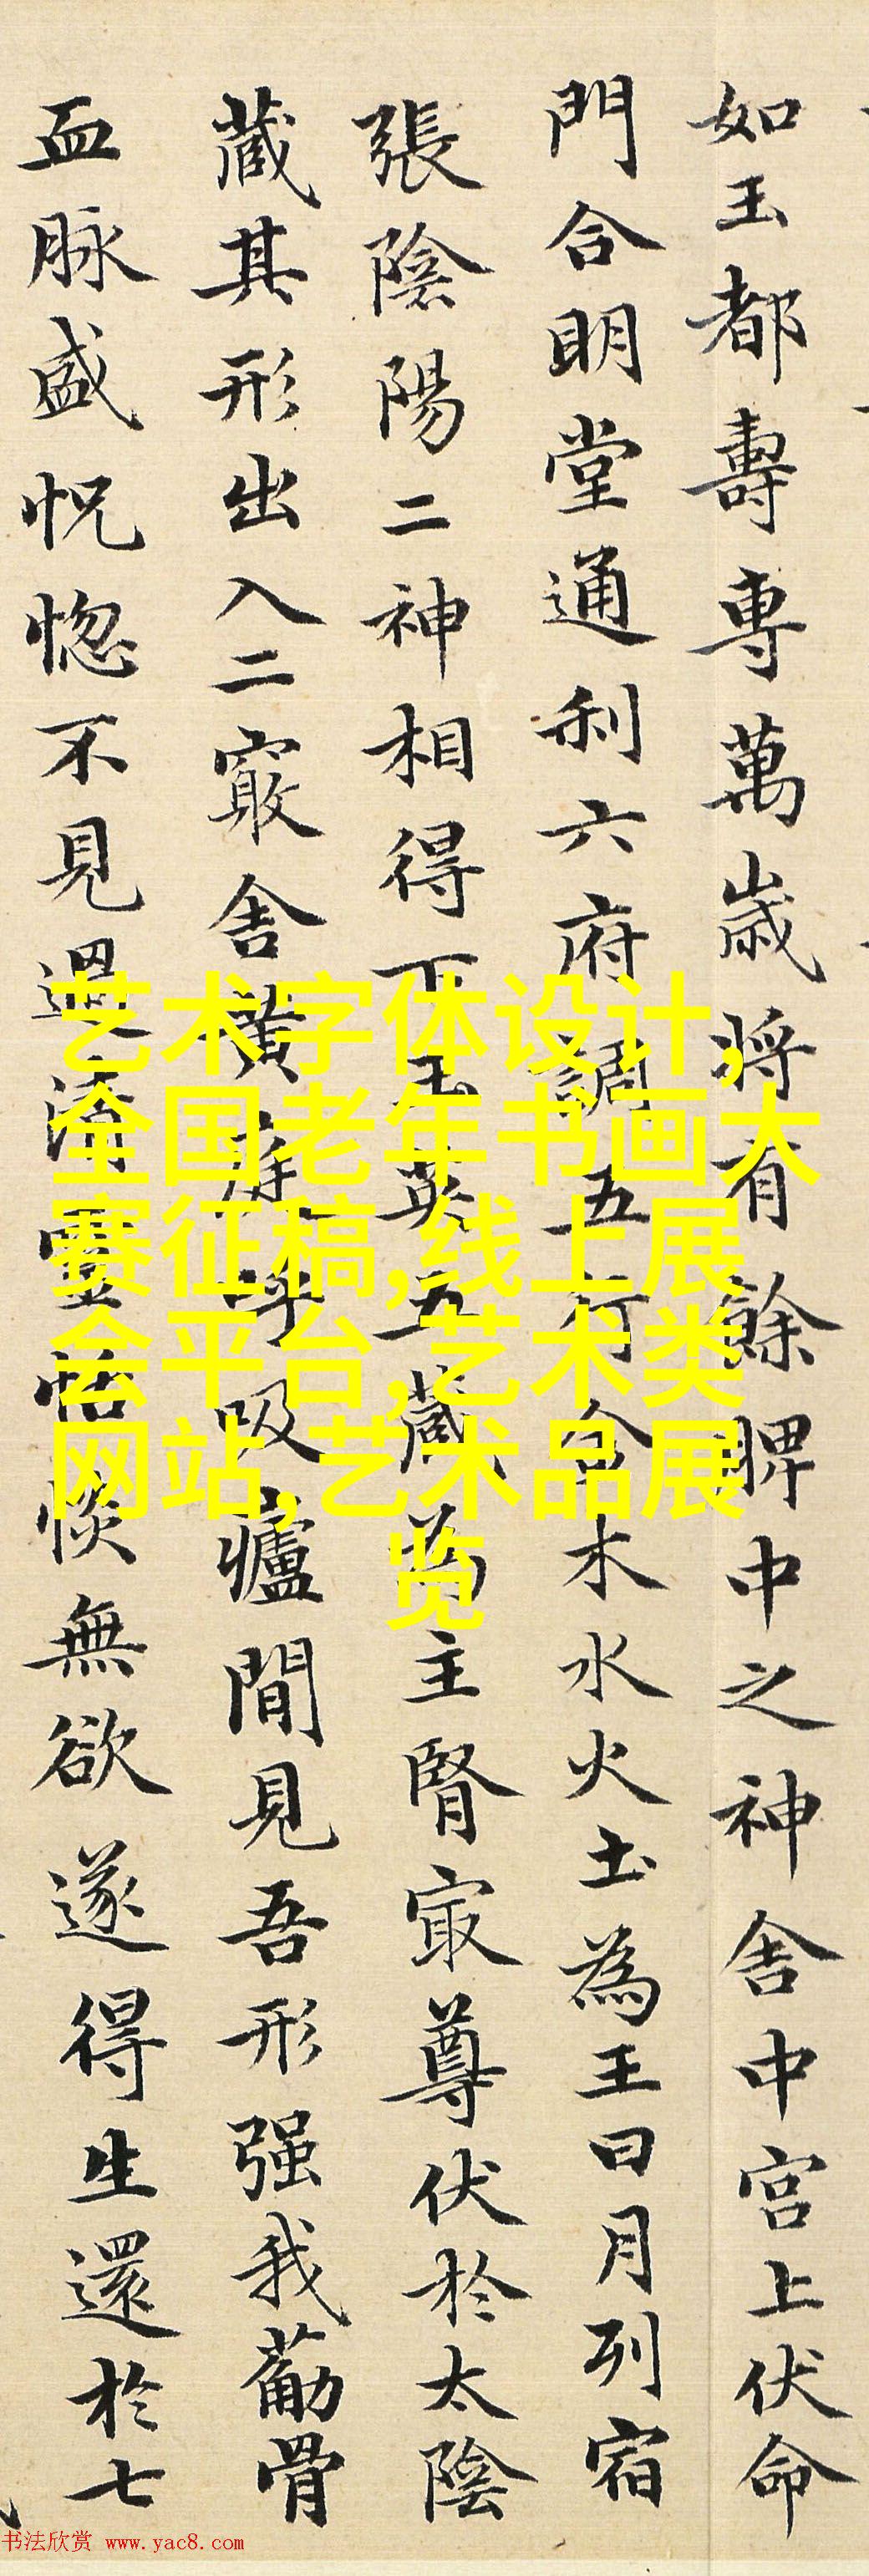 如玉都壽專萬歲將有餘脾中之神舍中宮上伏命
門合明堂通利六府調五行金木水火土為王日月列宿
張陰陽二神相得下玉英五藏為主腎冣尊伏於太陰
藏其形出入二竅舍黃庭呼吸廬間見吾形强我筋骨
血脉盛怳惚不見過清靈恬惔無欲遂得生還於七
艺术字体设计,
全国老年书画大
赛征稿,线上展
会平台,艺术类
网站,艺术品展
览
书法欣赏 www.yac8.com